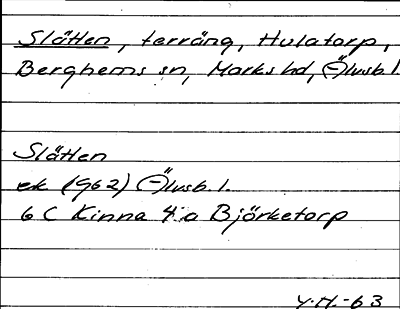 Slätten, terräng, Hulatorp,
Berghems sn, Marks hd, Älvsb. l.
Slätten
ek (1962) Älvsb. l.
6 C Kinna 4 a Björketorp
Y.H.-63